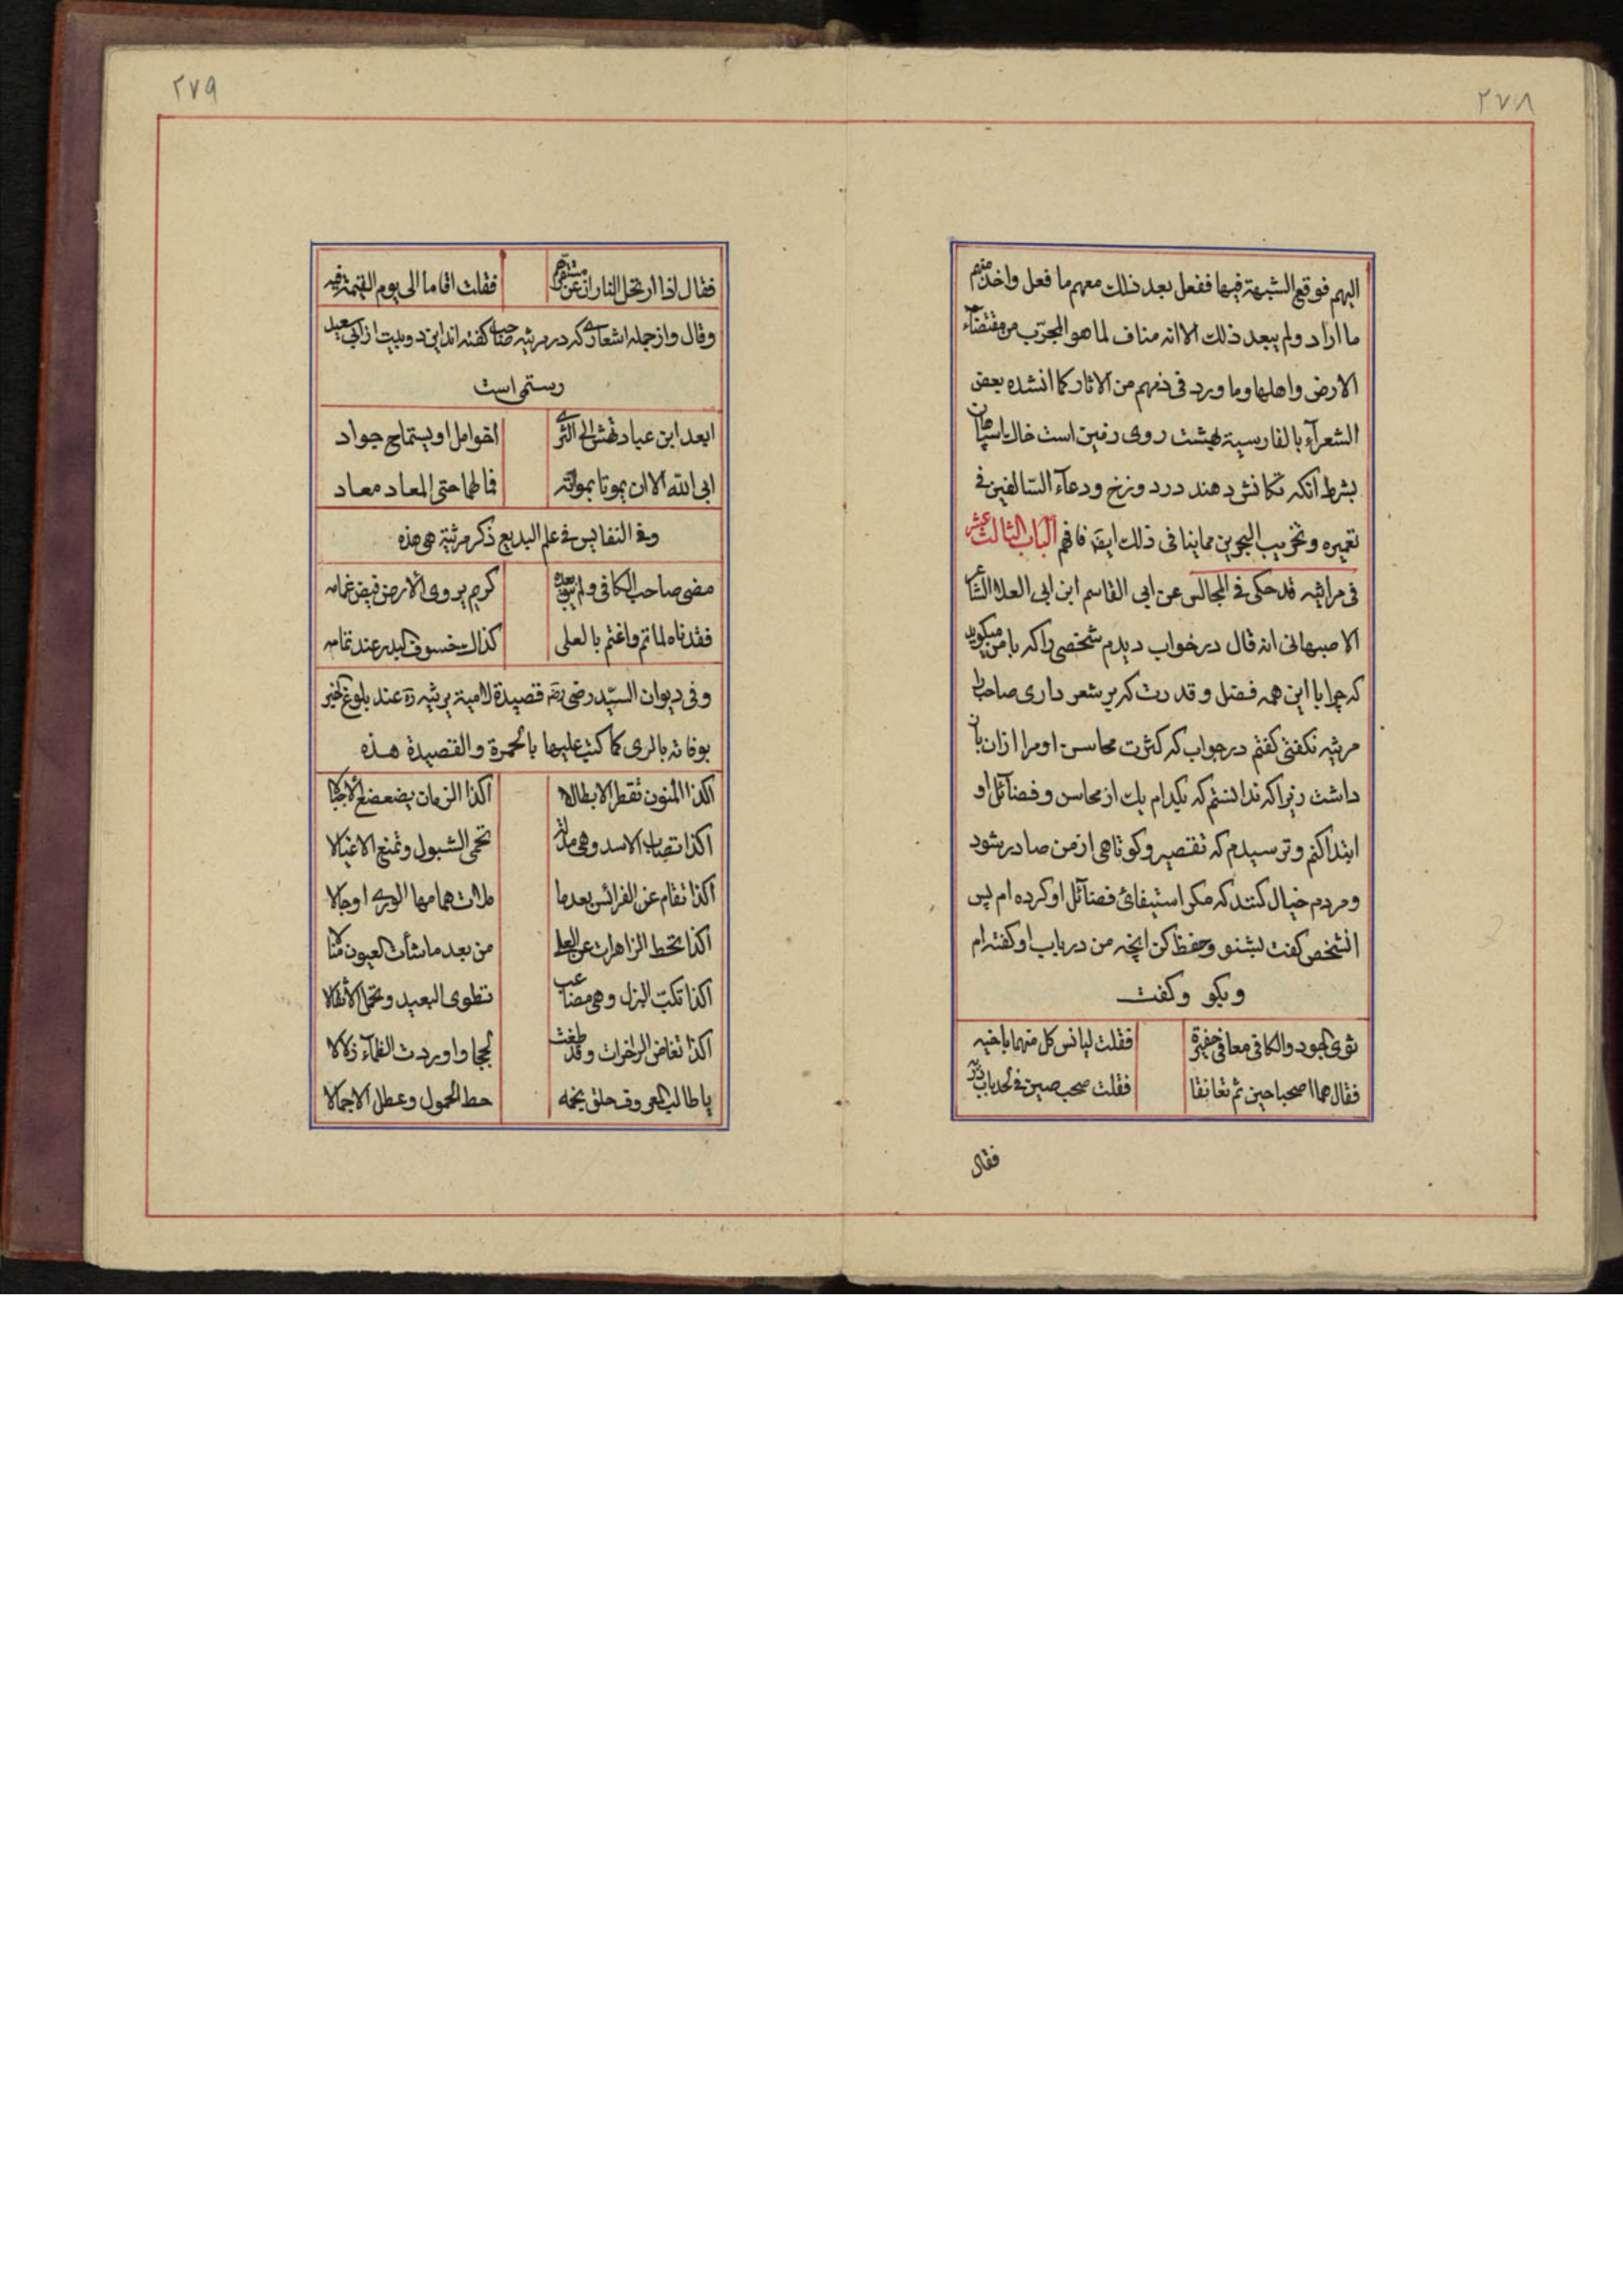 ٢٧٨
اليهم فوقع الشبهة فيها ففعل بعد ذلك معهم ما فعل واخذ منهم
ما اراد ولم يبعد ذلك الا انه مناف لما هو المجرّب من مقتضآء
الارض واهلها وما ورد فى ذمهم من الاثار كما انشده بعض
الشعرآء بالفارسية بهشت روى زمين است خاك اسپاهان
بشرط انكه تكانش دهند در دوزخ ودعآء السالفين فى
تعميره وتخريب البحرين مما ينافى ذلك ايضا فافهم الباب الثالث عشر
فى مراثيه قد حكى فى المجالس عن ابى القاسم ابن ابى العلا الشاعر
الاصبهانى انه قال در خواب ديدم شخصى را كه با من ميكويد
كه چرا با اين همه فضل و قدرت كه بر شعر دارى صاحب را
مرثيه نكفتى كفتم در جواب كه كثرت محاسن او مرا از ان باز
داشت زيرا كه ندانستم كه بكدام يك از محاسن و فضآئل او
ابتدا كنم و ترسيدم كه تقصير و كوتاهى از من صادر شود
و مردم خيال كنند كه مكر استيفائ فضآئل او كرده ام پس
انشخص كفت بشنو و حفظ كن انچه من در باب او كفته ام
و بكو و كفت
ثوى الجود والكافى معا فى حفيرة فقلت ليانس كل منهما باخيه
فقال هما اصطحبا حين ثم تعانقا فقلت صحب صين فى لحد باب
فقال
٢٧٩
فقال اذا ارتحل الثاران عن مستقرهم فقلت اقاما الى يوم القيمة فيه
وقال واز جمله اشعارى كه در مرثيه صاحب كفته اند اين دو بيت از ابى سعيد
رستمى است
ابعد ابن عباد يهش الى الثرى اخو امل او يستماح جواد
ابى الله الا ان يموتا بموته فما لهما حتى المعاد معاد
وفى النفايس فى علم البديع ذكر مرثية هى هذه
مضى صاحب الكافى ولم يبق بعده كريم يروى الارض فيض غمامه
فقدناه لما تم واغتم بالعلى كذاك خسوف البدر عند تمامه
وفى ديوان السيّد رضى رضه قصيدة لامية يرثيه ره عند بلوغ الخبر
بوفاته بالرى كما كتب عليها بالحمرة والقصيدة هذه
اكذا المنون تقطر الابطالا اكذا الزمان يضعضع الاجبالا
اكذا تصاب الاسد وهى مدلة تحمى الشبول وتمنع الاغيالا
اكذا تقام عن الفرائس بعدما ملات هماهمها الورى اوجالا
اكذا تحط الزاهرات عن العلى من بعد ما شأت العيون منالا
اكذا تكب البزل وهى مصاعب تطوى البعيد وتحمل الاثقالا
اكذا تغاض الزاخرات وقد طغت لججا و اوردت الظمآء زلالا
يا طالب المعروف حلق نجمه حط الحمول وعطل الاجمالا